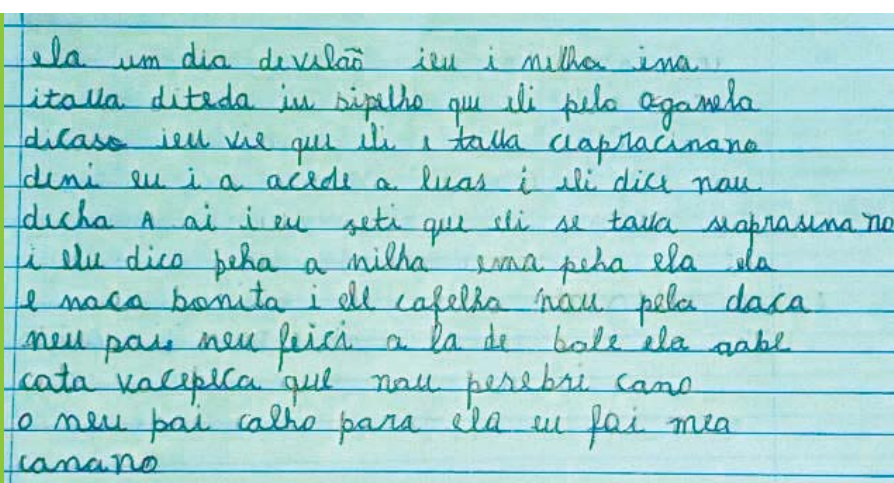 ela um dia develão ieu i milha ima
itava diteda iu sipilho que eli pelo aganela
dicaso ieu vie que ili i tava ciapracinano
deni eu i a acede a luas i ili dice nau
decha A ai i eu seti que eli se tava siaprasina no
i elu dico peha a nilha ema peha ela ela
e maca bonita i ell cafelho nau pela daca
meu pai neu feici a la de bale ela sabe
cata vacepeca que nau perebri cano
o neu pai calho para ela eu fai mea
canano